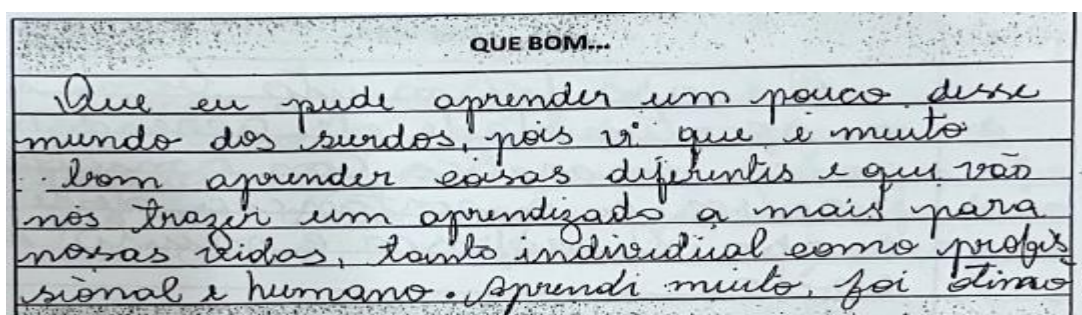 QUE BOM...
Que eu pude aprender um pouco desse
mundo dos surdos, pois vi que é muito
bom aprender coisas diferentes e que vão
nós trazer um aprendizado a mais para
nossas vidas, tanto individual como profis
sional e humano. Aprendi muito, foi ótimo